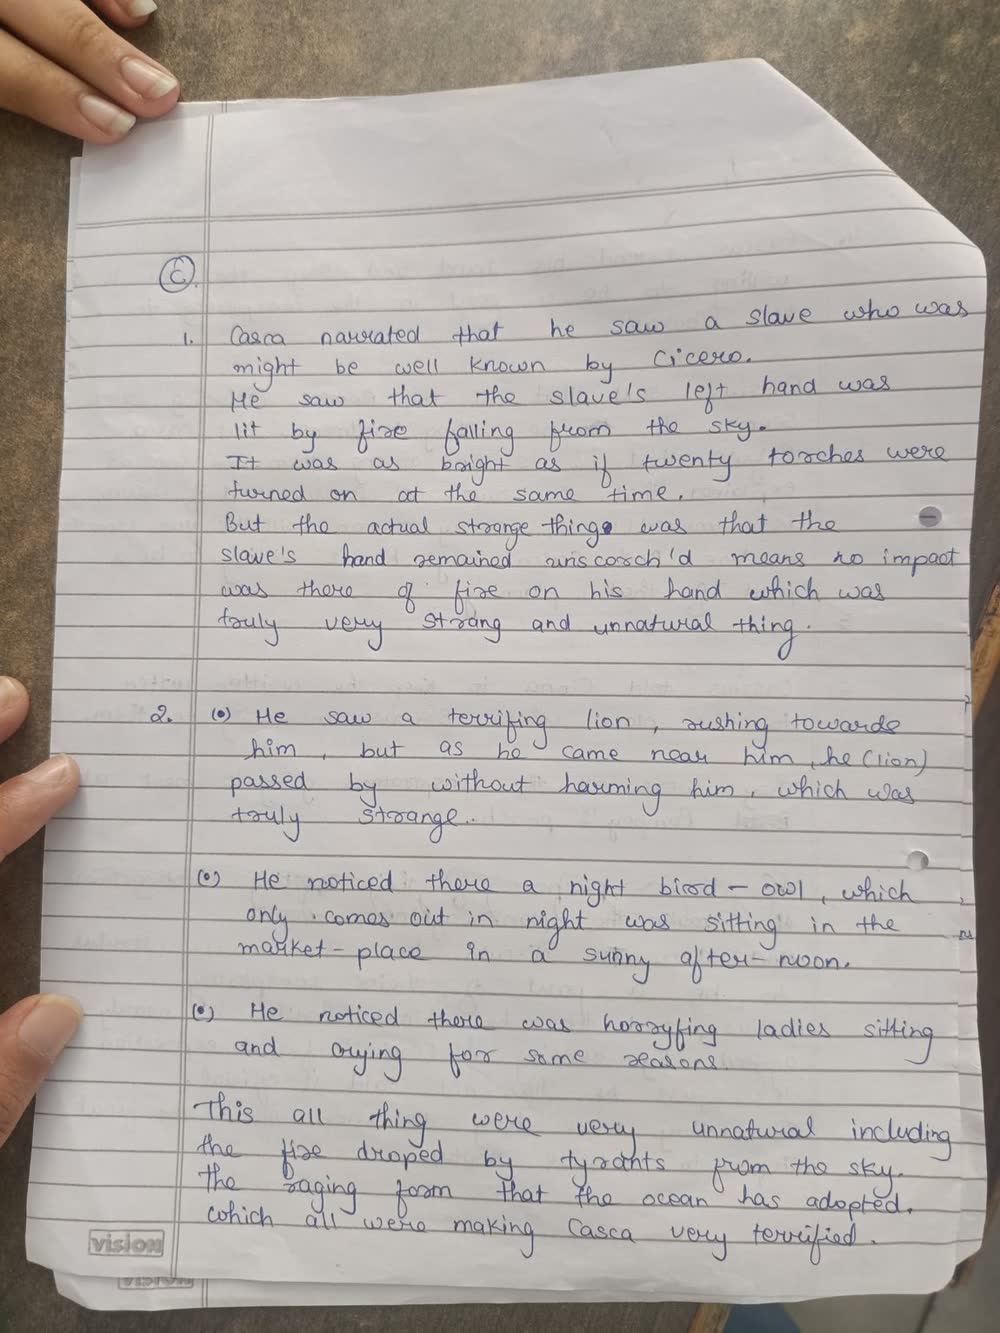 C.
1. Casca narrated that he saw a slave who was
might be well known by Cicero.
He saw that the slave's left hand was
lit by fire falling from the sky.
It was as bright as if twenty torches were
turned on at the same time.
But the actual strange thing was that the
slave's hand remained unscorch'd means no impact
was there of fire on his hand which was
truly very strang and unnatural thing.
2. (•) He saw a terrifing lion, rushing towards
him, but as he came near him, he (lion)
passed by without harming him, which was
truly strange.
(•) He noticed there a night bird - owl, which
only comes out in night was sitting in the
market-place in a sunny after-noon.
(•) He noticed there was horryfing ladies sitting
and crying for some reasons.
This all thing were very unnatural including
the fire droped by tyrants from the sky.
the raging form that the ocean has adopted.
which all were making Casca very terrified.
vision
VISION